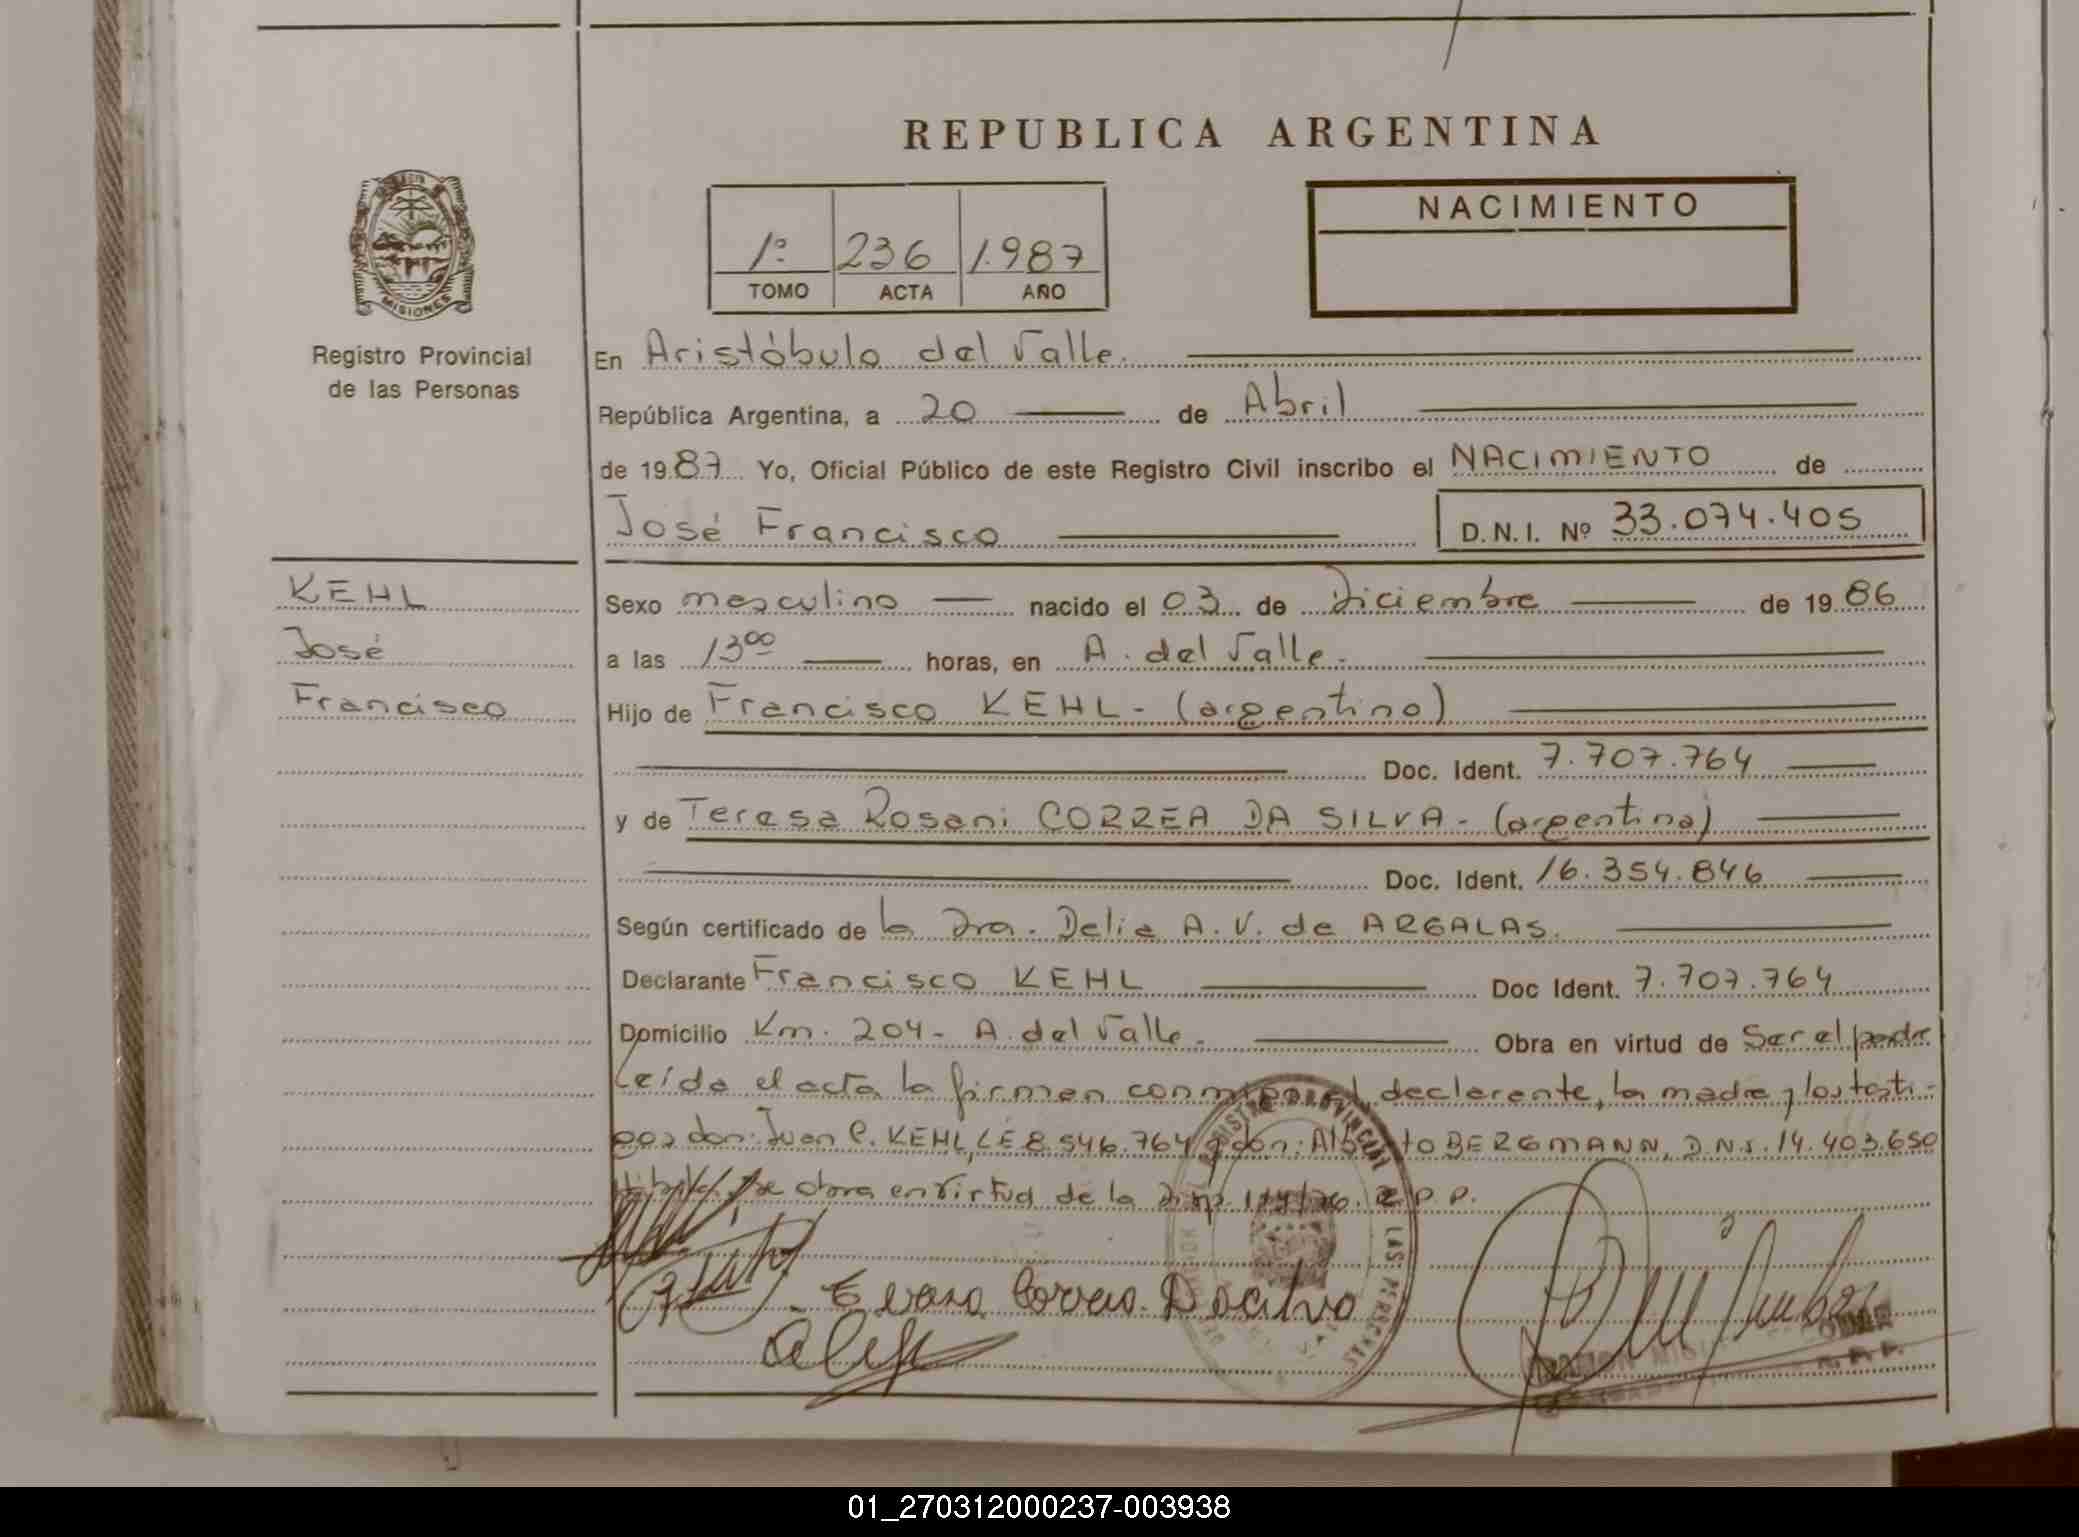 REPUBLICA ARGENTINA
MISIONES
Registro Provincial
de las Personas
1º 236 1.987
TOMO ACTA AÑO
NACIMIENTO
En Aristóbulo del Valle.
República Argentina, a 20 de Abril
de 1987 Yo, Oficial Público de este Registro Civil inscribo el NACIMIENTO de
José Francisco D.N.I. Nº 33.074.405
KEHL
José
Francisco
Sexo masculino nacido el 03 de Diciembre de 1986
a las 13 00 horas, en A. del Valle.
Hijo de Francisco KEHL - (argentino)
Doc. Ident. 7.707.764
y de Teresa Rosani CORREA DA SILVA - (argentina)
Doc. Ident. 16.354.846
Según certificado de la Dra. Delia A. V. de ARGALAS.
Declarante Francisco KEHL Doc Ident. 7.707.764
Domicilio Km. 204 - A. del Valle. Obra en virtud de Ser el padre
Leída el acta la firman conmigo el declarante, la madre y los testi-
gos don: Juan C. KEHL, L.E 8.546.764 y don: Alberto BERGMANN, D.N.I. 14.403.650
se obra en virtud de la R.P.P.
REGISTRO PROVINCIAL DE LAS PERSONAS
01_270312000237-003938